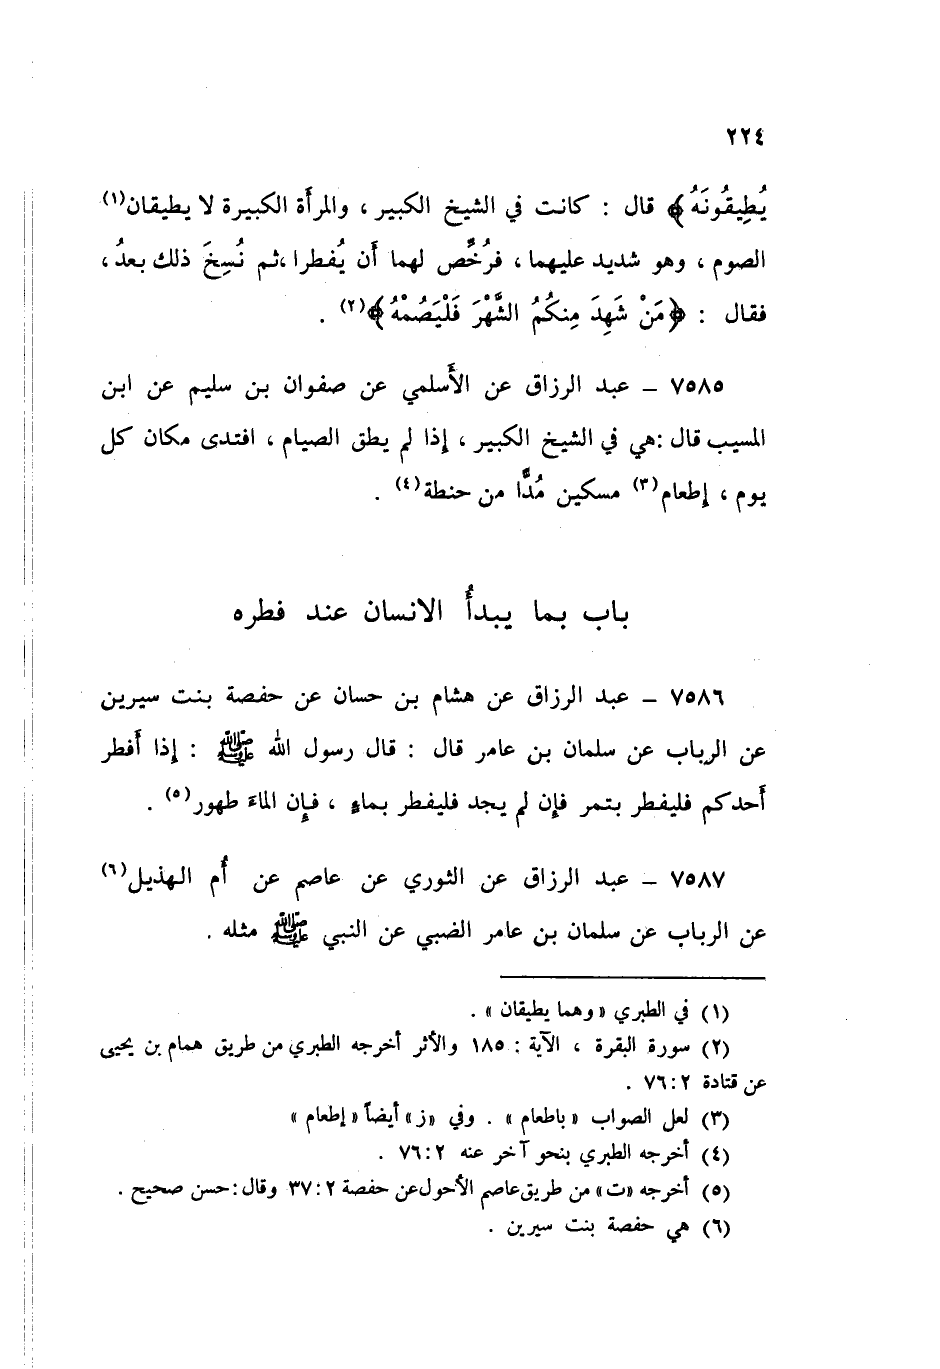 ٢٢٤
يُطِيقُونَهُ﴾ قال : كانت في الشيخ الكبير ، والمرأة الكبيرة لا يطيقان(١)
الصوم ، وهو شديد عليهما ، فرُخّص لهما أن يُفطرا ،ثم نُسِخَ ذلك بعدُ ،
فقال : ﴿مَنْ شَهِدَ مِنكُمُ الشَّهْرَ فَلْيَصُمْهُ﴾(٢) .
٧٥٨٥ – عبد الرزاق عن الأَسلمي عن صفوان بن سليم عن ابن
المسيب قال :هي في الشيخ الكبير ، إذا لم يطق الصيام ، افتدى مكان كل
يوم ، إطعام(٣) مسكين مُدًّا من حنطة(٤) .
باب بما يبدأُ الانسان عند فطره
٧٥٨٦ – عبد الرزاق عن هشام بن حسان عن حفصة بنت سيرين
عن الرباب عن سلمان بن عامر قال : قال رسول الله ﷺ : إذا أَفطر
أَحدكم فليفطر بتمر فإِن لم يجد فليفطر بماءٍ ، فإِن الماءَ طهور(٥) .
٧٥٨٧ – عبد الرزاق عن الثوري عن عاصم عن أُم الهذيل(٦)
عن الرباب عن سلمان بن عامر الضبي عن النبي ﷺ مثله .
(١) في الطبري «وهما يطيقان» .
(٢) سورة البقرة ، الآية : ١٨٥ والأثر أخرجه الطبري من طريق همام بن يحيى
عن قتادة ٢ : ٧٦ .
(٣) لعل الصواب «باطعام» . وفي «ز» أيضاً «إطعام»
(٤) أخرجه الطبري بنحو آخر عنه ٢ : ٧٦ .
(٥) أخرجه «ت» من طريق عاصم الأحول عن حفصة ٢ : ٣٧ وقال : حسن صحيح .
(٦) هي حفصة بنت سيرين .